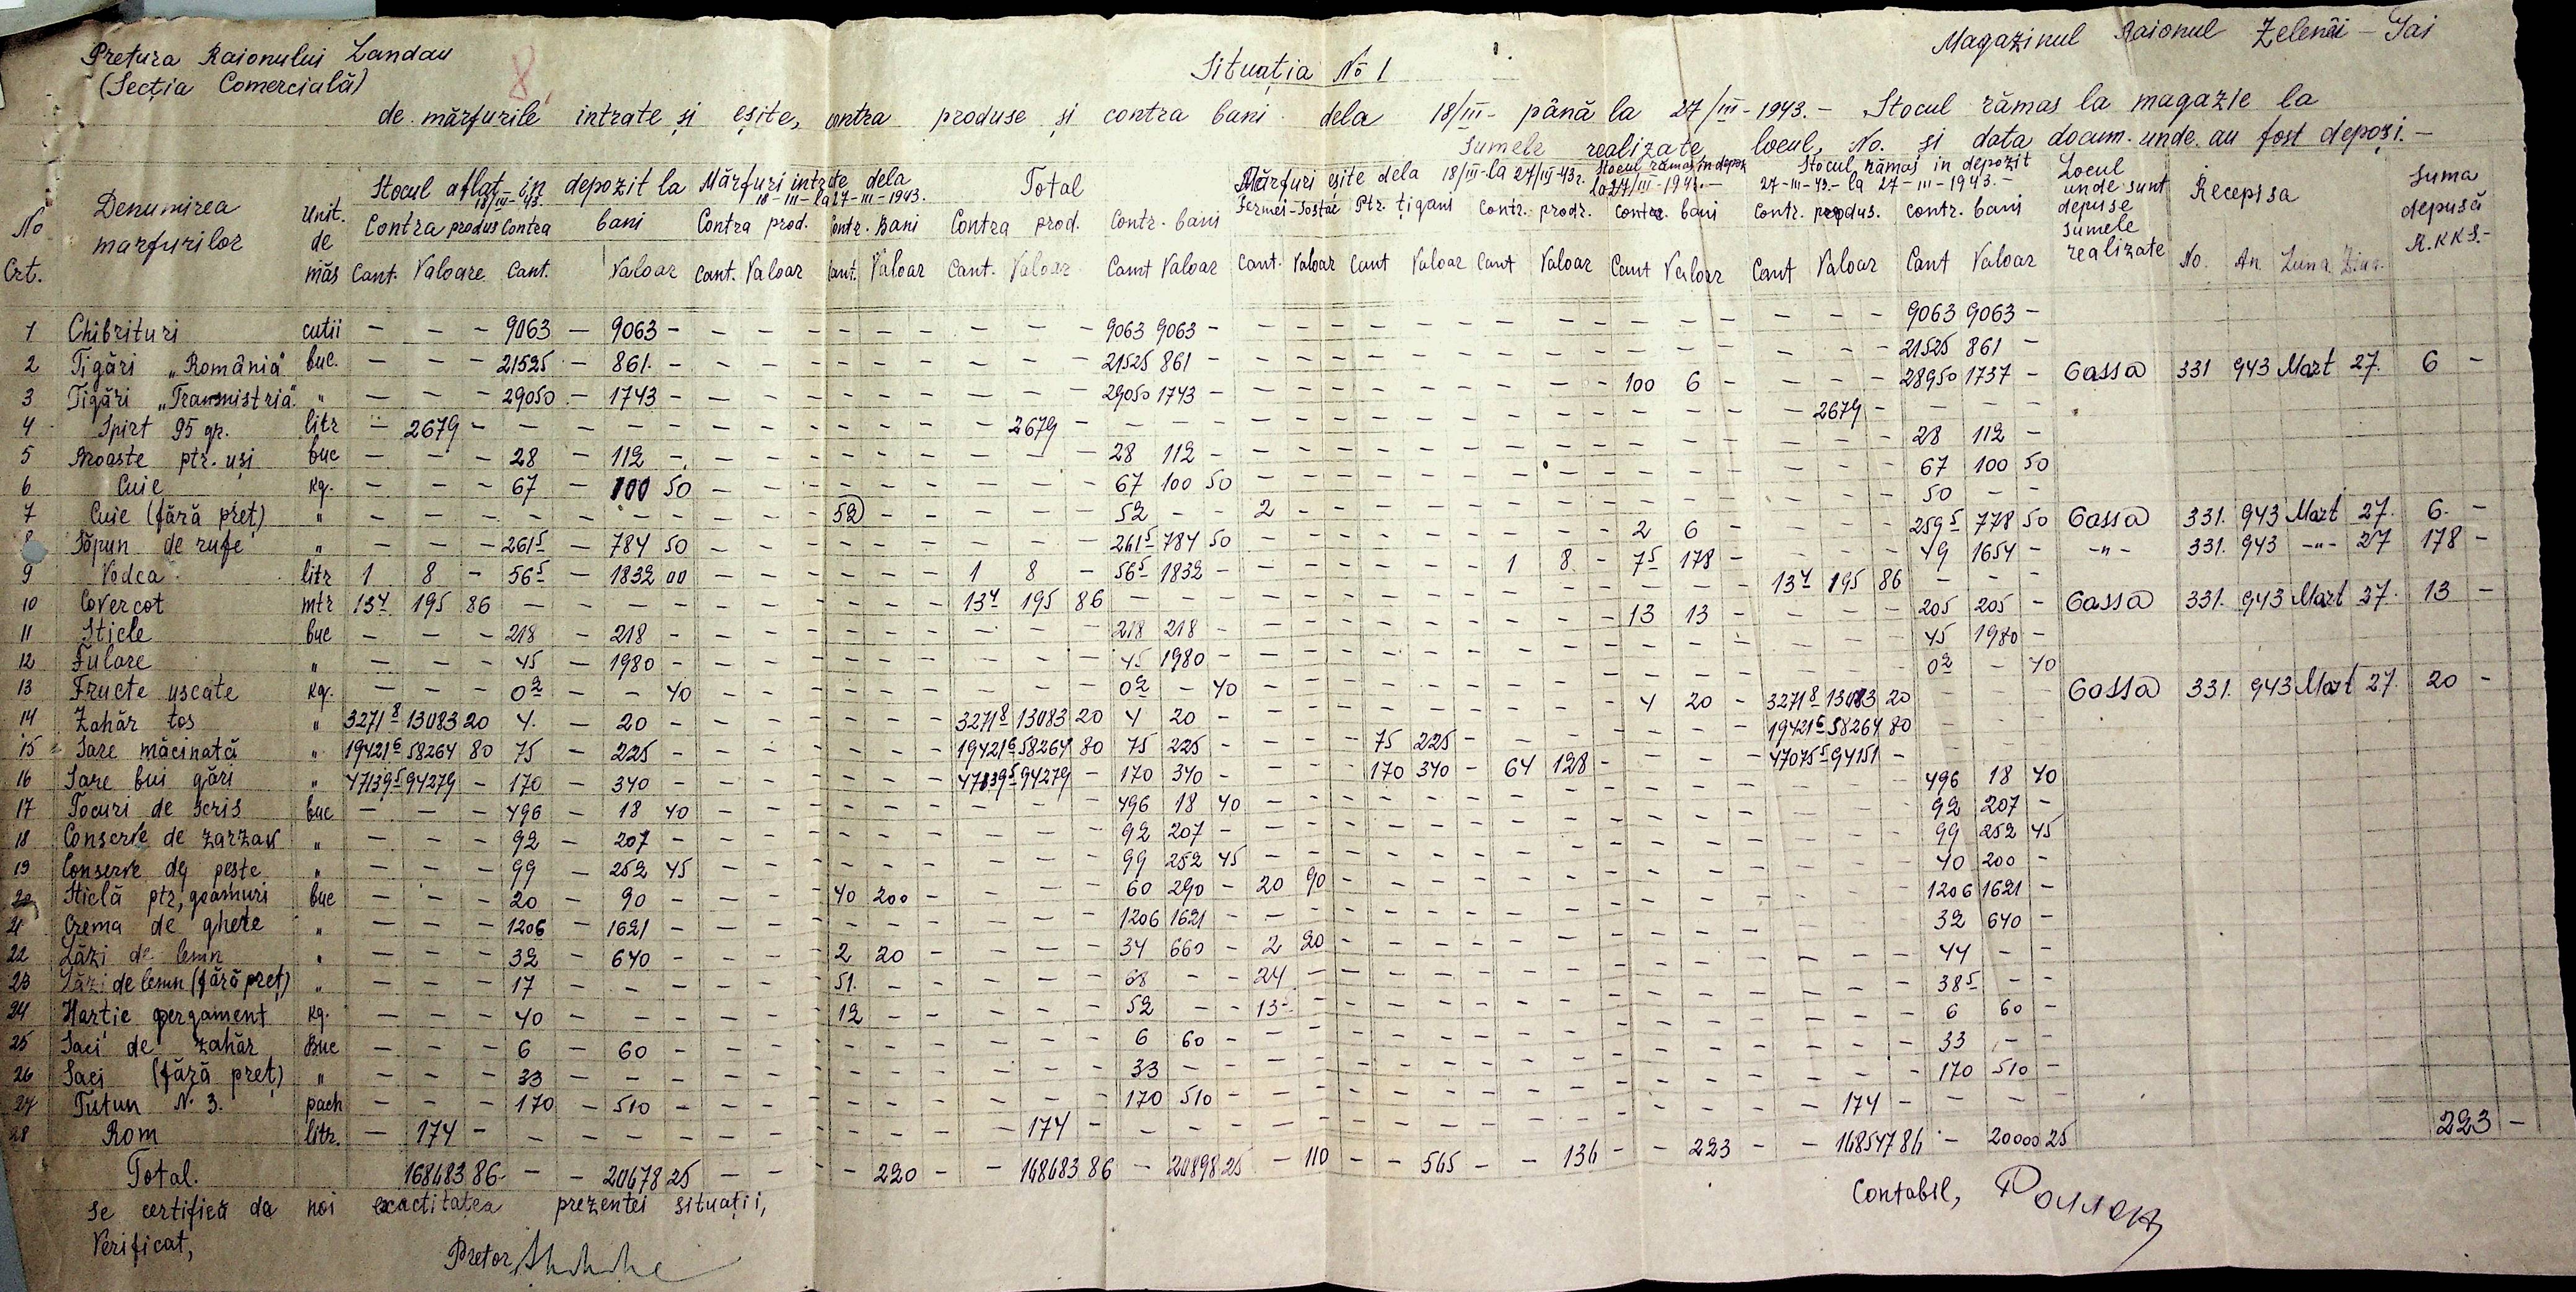 Pretura Raionului Landau
(Secția Comercială)
8
Situația No 1
Magazinul Raionul Zelenâi - Gai
de mărfurile intrate și eșite, contra produse și contra bani dela 18/III- până la 27/III-1943.- Stocul rămas la magazie la
Sumele realizate locul, No. și data docum. unde au fost depoși.-
No Crt. Denumirea marfurilor Unit. de măs Stocul aflat in depozit la 18/III-43. Mărfuri intrate dela 18-III-la 27-III-1943. Total Mărfuri eșite dela 18/III-la 27/III-43 r. Stocul rămas in depoz la 27/III-1943.- Stocul rămas in depozit 27-III-43.- la 27-III-1943.- Locul unde sunt depuse sumele realizate Recepisa Suma depusă R.K.K.S.-
Contra produs Contra bani Contra prod. Contr. Bani Contra prod. Contr. bani Fermei-Sostac Ptr. țigani Contr. prodr. Contra. bani Contr. produs. Contr. bani
Cant. Valoare Cant. Valoar Cant. Valoar Cant. Valoar Cant. Valoar Cant Valoar Cant. Valoar Cant Valoar Cant Valoar Cant Valoar Cant Valoar Cant Valoar No. An Luna Ziua.
1 Chibrituri cutii - - - 9063 - 9063 - 9063 9063 - 9063 9063 -
2 Țigări „România" buc. - - - 21525 - 861. - 21525 861 - 21525 861 -
3 Țigări „Transnistria" " - - - 29050 - 1743 - 29050 1743 - 100 6 - 28950 1737 - Cassa 331 943 Mart 27. 6 -
4 Spirt 95 gr. litr - 2679 - 2679 - 2679 -
5 Broaste ptr. uși buc - - - 28 - 112 - 28 112 - 28 112 -
6 Cuie kg. - - - 67 - 100 50 67 100 50 67 100 50
7 Cuie (fără preț) " - - - 52 52 - - 2 50 - -
8 Săpun de rufe " - - - 261 5 - 784 50 261 5 784 50 2 6 - 259 5 778 50 Cassa 331. 943 Mart 27. 6. -
9 Vodca litr 1 8 - 56 5 - 1832 00 1 8 - 56 5 1832 - 1 8 - 7 5 178 - 49 1654 - -"- 331. 943 -"- 27 178 -
10 Covercot mtr 13 4 195 86 13 4 195 86 13 4 195 86
11 Sticle buc - - - 218 - 218 - 218 218 - 13 13 - 205 205 - Cassa 331. 943 Mart 27. 13 -
12 Fulare " - - - 45 - 1980 - 45 1980 - 45 1980 -
13 Fructe uscate kg. - - - 0 2 - - 40 0 2 - 40 0 2 - 40
14 Zahăr tos " 3271 8 13083 20 4. - 20 - 3271 8 13083 20 4 20 - 4 20 - 3271 8 13083 20 - - - Cassa 331. 943 Mart 27. 20 -
15 Sare măcinată " 19421 6 58264 80 75 - 225 - 19421 6 58264 80 75 225 - 75 225 - 19421 6 58264 80
16 Sare bui gări " 47139 5 94279 - 170 - 340 - 47139 5 94279 - 170 340 - 170 340 - 64 128 - 47075 5 94151 -
17 Tocuri de scris buc - - - 496 - 18 40 496 18 40 496 18 40
18 Conserve de zarzav " - - - 92 - 207 - 92 207 - 92 207 -
19 Conserve de pește " - - - 99 - 252 45 99 252 45 99 252 45
20 Sticlă ptr, geamuri buc - - - 20 - 90 - 40 200 - 60 290 - 20 90 - 40 200 -
21 Crema de ghete " - - - 1206 - 1621 - 1206 1621 - 1206 1621 -
22 Lăzi de lemn " - - - 32 - 640 - 2 20 - 34 660 - 2 20 - 32 640 -
23 Lăzi de lemn (fără preț) " - - - 17 - 51. 68 - - 24 - 44 - -
24 Hartie pergament kg. - - - 40 - 12 52 - - 13 5 - 38 5 - -
25 Saci de zahăr Buc - - - 6 - 60 - 6 60 - 6 60 -
26 Saci (fără preț) " - - - 33 - 33 - - 33 - -
27 Tutun N. 3. pach - - - 170 - 510 - 170 510 - 170 510 -
28 Rom litr. - 174 - 174 - 174 -
Total. 168683 86 - - 20678 25 - - - 220 - - 168683 86 - 20898 25 - 110 - - 565 - - 136 - - 223 - - 168547 86 - 20000 25 223 -
Se certifică de noi exactitatea prezentei situații,
Verificat,
Pretor,
Contabil,